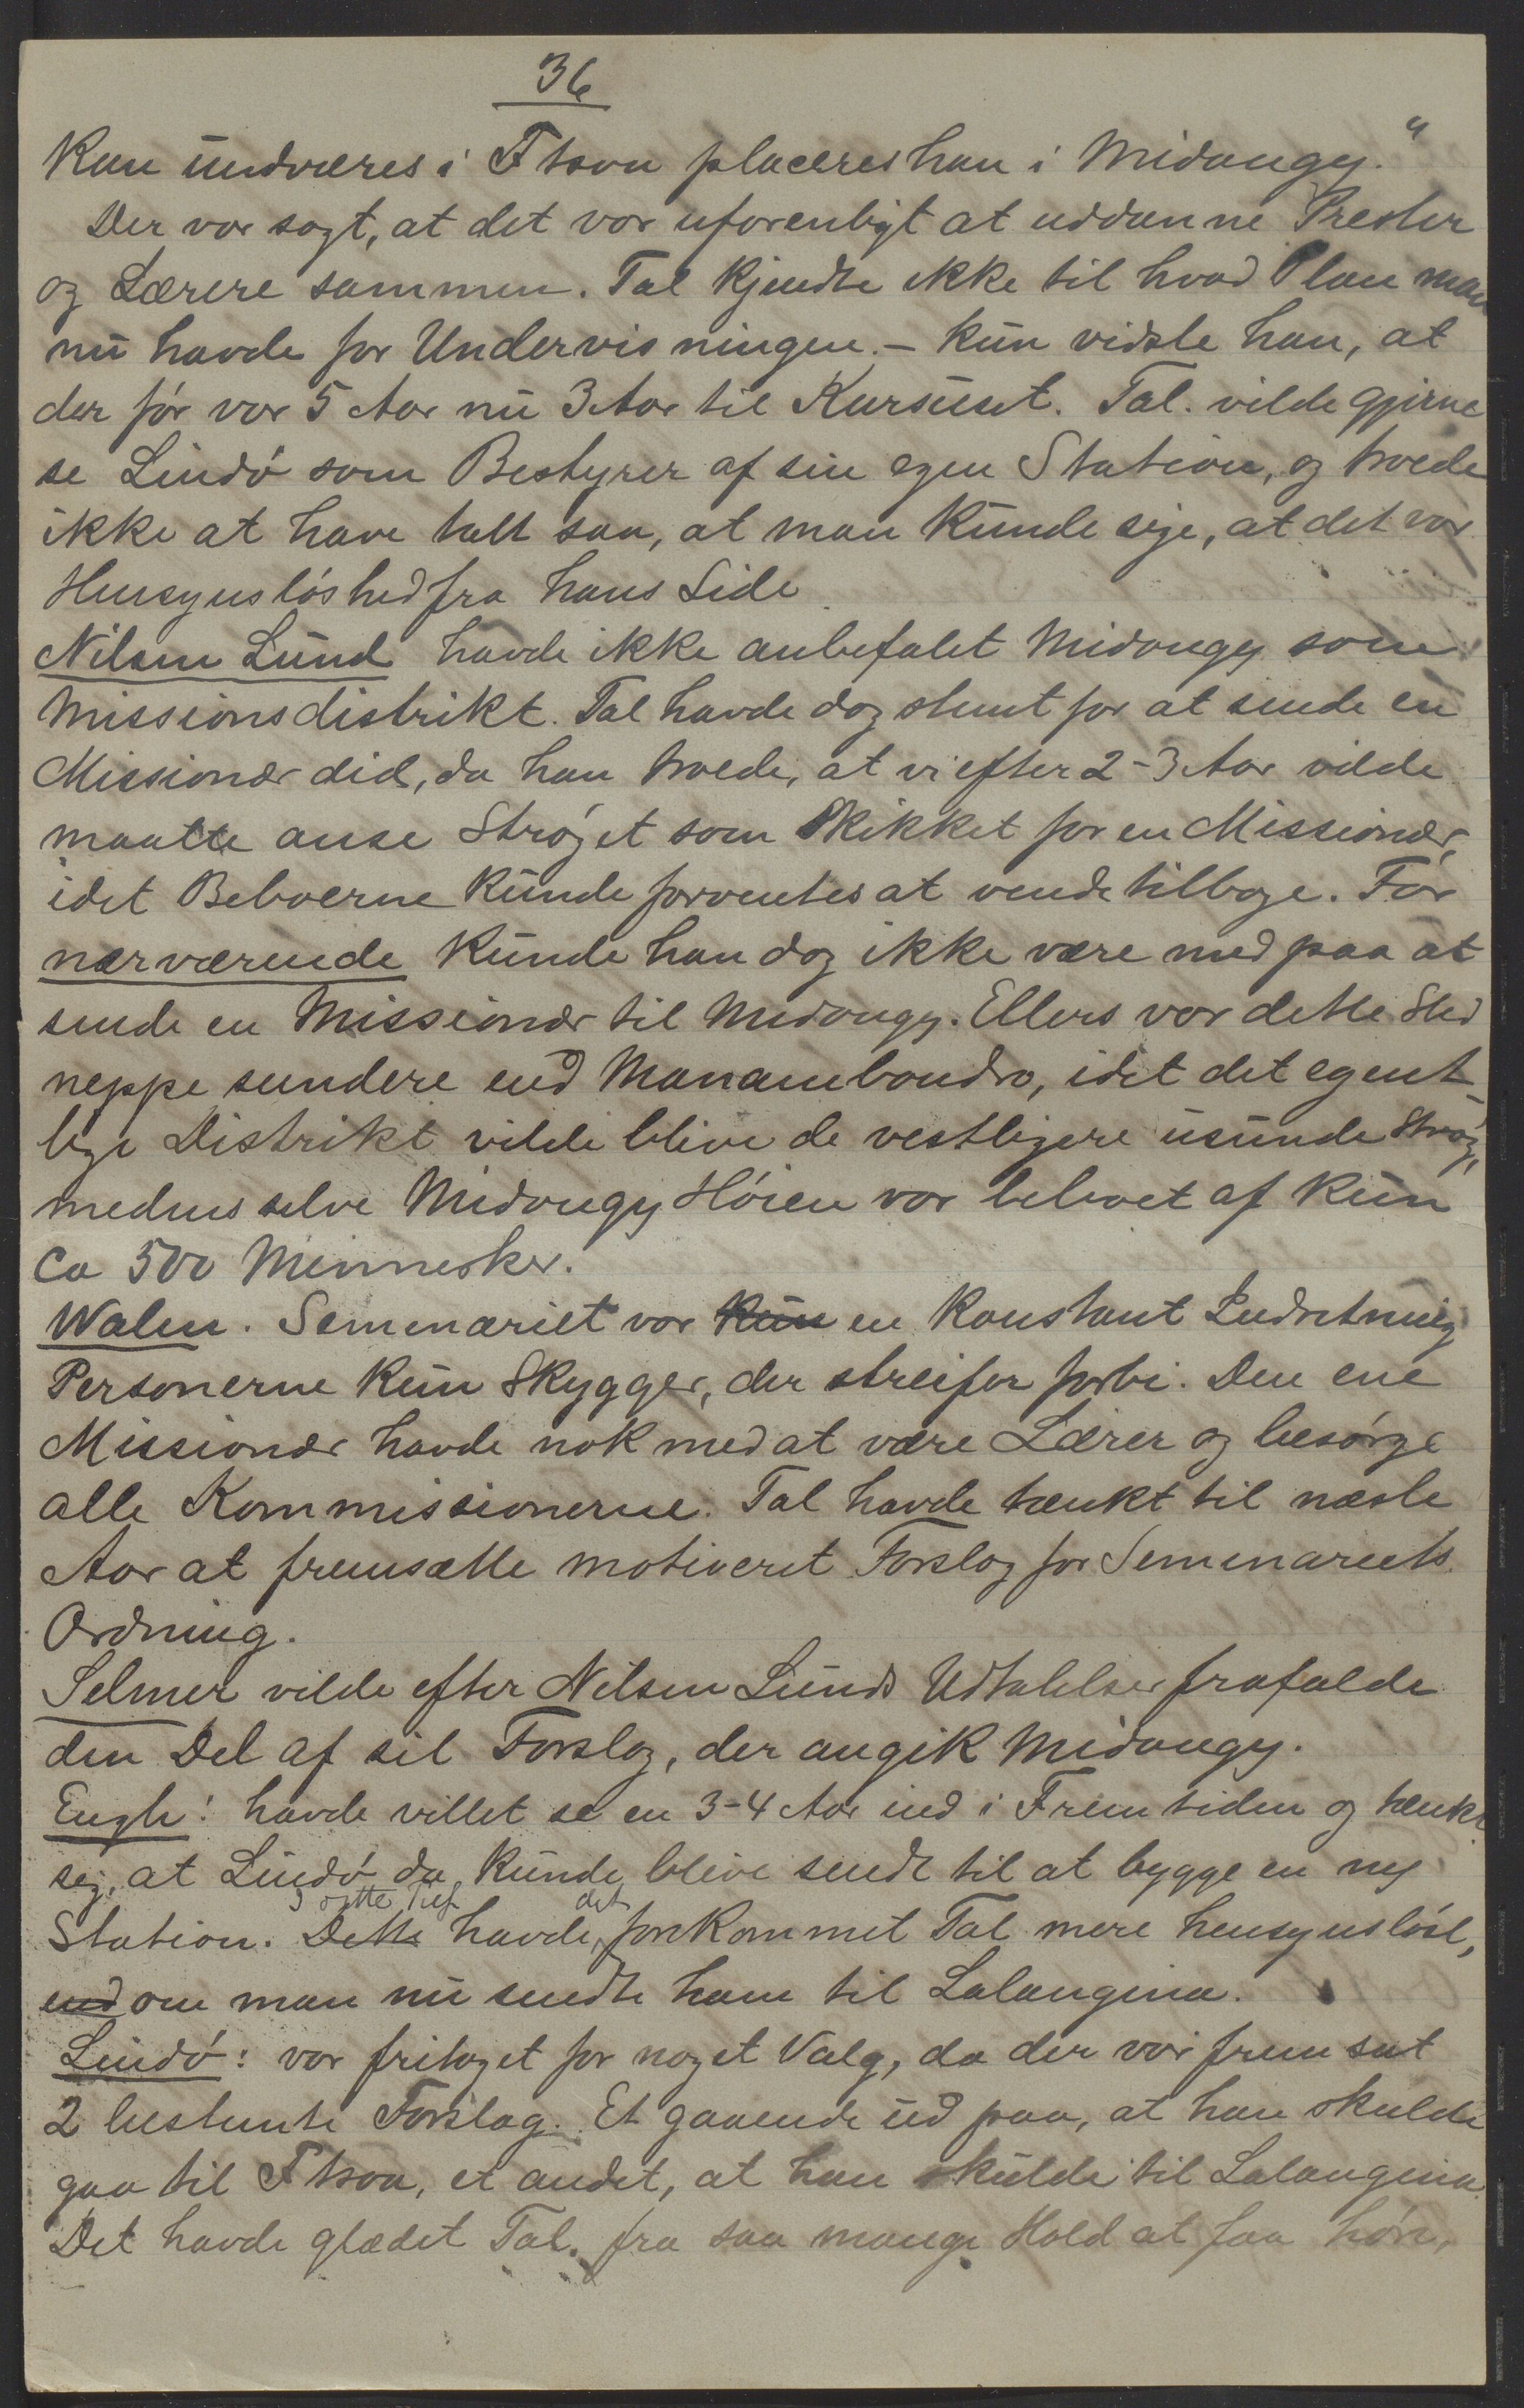 36
Kan undværes i Ftsoa placeres han i Midongy."
Der var sagt, at det var uforenligt at uddanne Prester
og Lærere sammen. Tal kjendte ikke til hvad Plan man
nu havde for Undervisningen. – Kun vidste han, at
der før var 5 Aar nu 3 Aar til Kurseset. Tal. vilde gjerne
se Lindø som Bestyrer af sin egen Station, og troede
ikke at have talt saa, at man kunde sige, at det var
Hensynsløshed fra hans Side
Nilsen Lund havde ikke anbefalet Midongy som
Missionsdistrikt. Tal havde dog stemt for at sende en
Missionær did, da han troede, at vi efter 2-3 Aar vilde
maatte anse Strøget som skikket for en Missionær,
idet Beboerne kunde forventes at vende tilbage. For
nærværende kunde han dog ikke være med paa at
sende en Missionær til Midongy. Ellers var dette Sted
neppe sundere end Manambondro, idet det egent
lige Distrikt vilde blive de vestligere usunde Strøg,
medens selve Midongy Høien var beboet af kun
Ca 500 Mennesker.
Walen. Seminariet var kun en konstant Indretning
Personerne kun Skygger, der streifer forbi. Den ene
Missionær havde nok med at være Lærer og besørge
alle Kommissionerne. Tal havde tænkt til næste
Aar at fremsætte motiveret Forslag for Seminariets
Ordning.
Selmer vilde efter Nilsen Lunds Udtalelser frafalde
den Del af sit Forslag, der angik Midongy.
Engh: havde villet se en 3-4 Aar ind i Fremtiden og tænkt
sig, at Lindø da kunde blive sendt til at bygge en ny
Station. Dette havde det forekommet Tal mere hensynsløst,
end om man nu sendte ham til Lalangina.
Lindø: var fritaget for noget Valg, da der var fremsat
2 bestemte Forslag. Et gaaende ud paa, at han skulde
gaa til Ftsoa, et andet, at han skulde til Lalangina.
Det havde glædet Tal. fra saa mange Hold at faa høre,